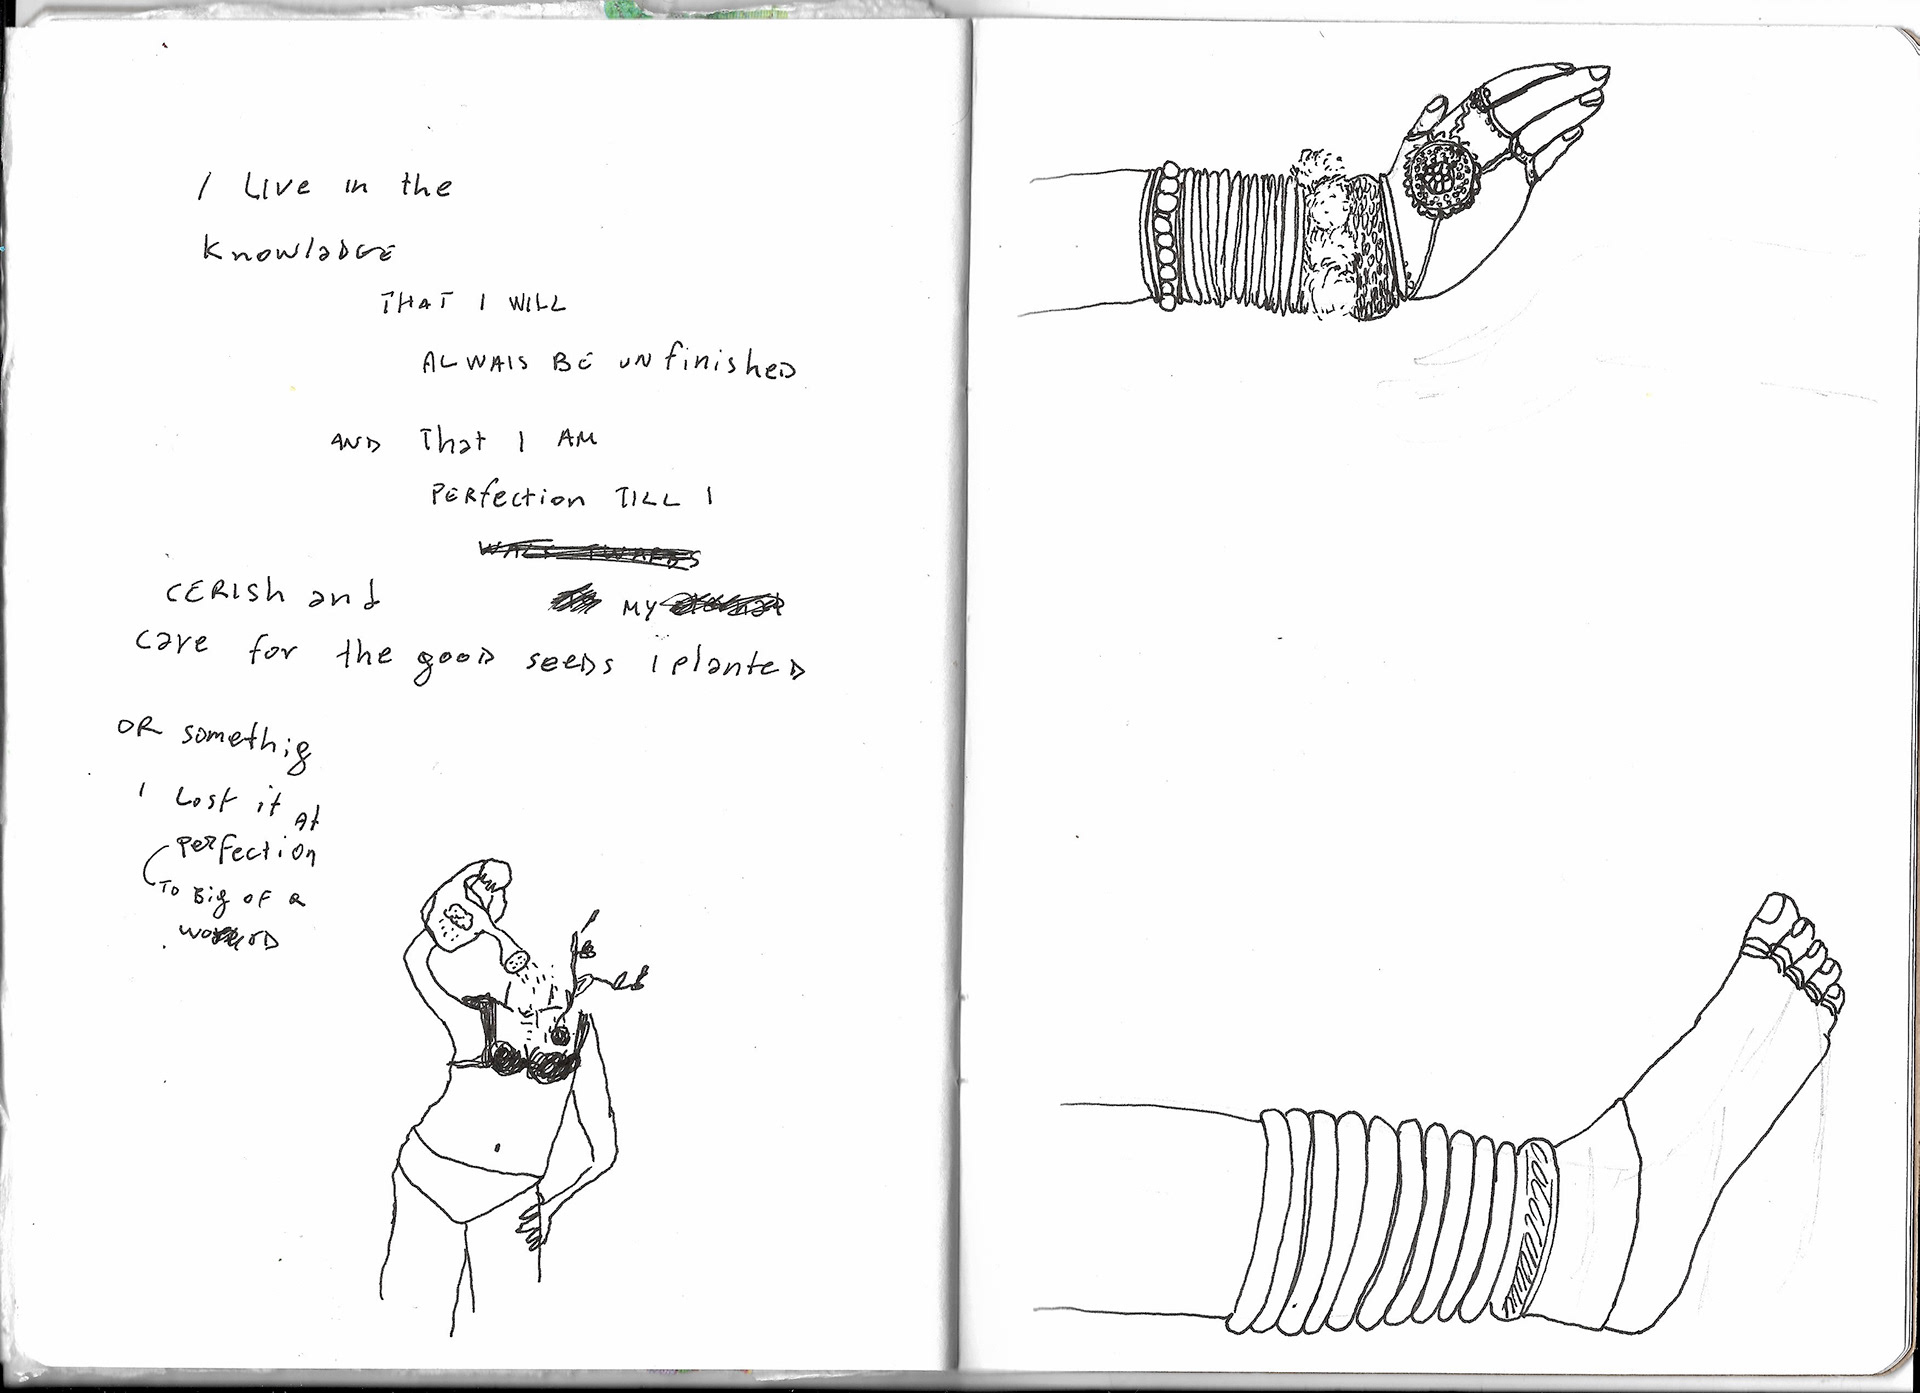 I LIVE in the
KnowladGE
THAT I WILL
ALWAIS BE UNfinisheD
AND That I AM
PERfection TILL I
CERISh and
MY
care for the gooD seeDs i planteD
OR somethig
I Lost it At
perfection
To Big OF a
woRD